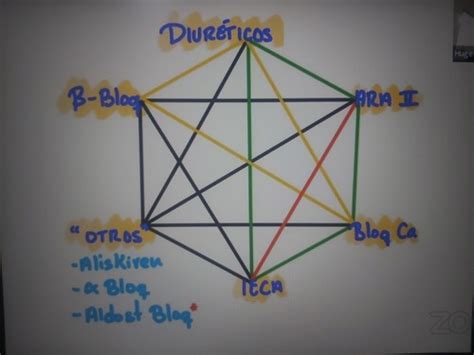 DIURÉTICOS
β-Bloq
ARA II
"OTROS
Bloq Ca
IECA
-Aliskiren
-α Bloq
-Aldost Bloq*